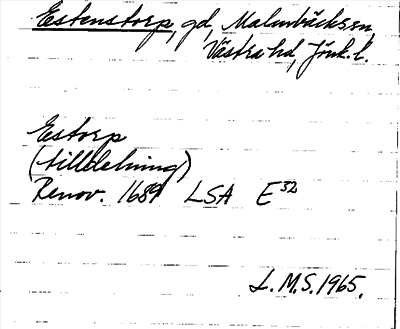 Estenstorp, gd, Malmbäcks sn
Västra hd, Jönk. l.
Estorp
(tilldelning)
Renov. 1689 LSA E³²
L.M.S. 1965.